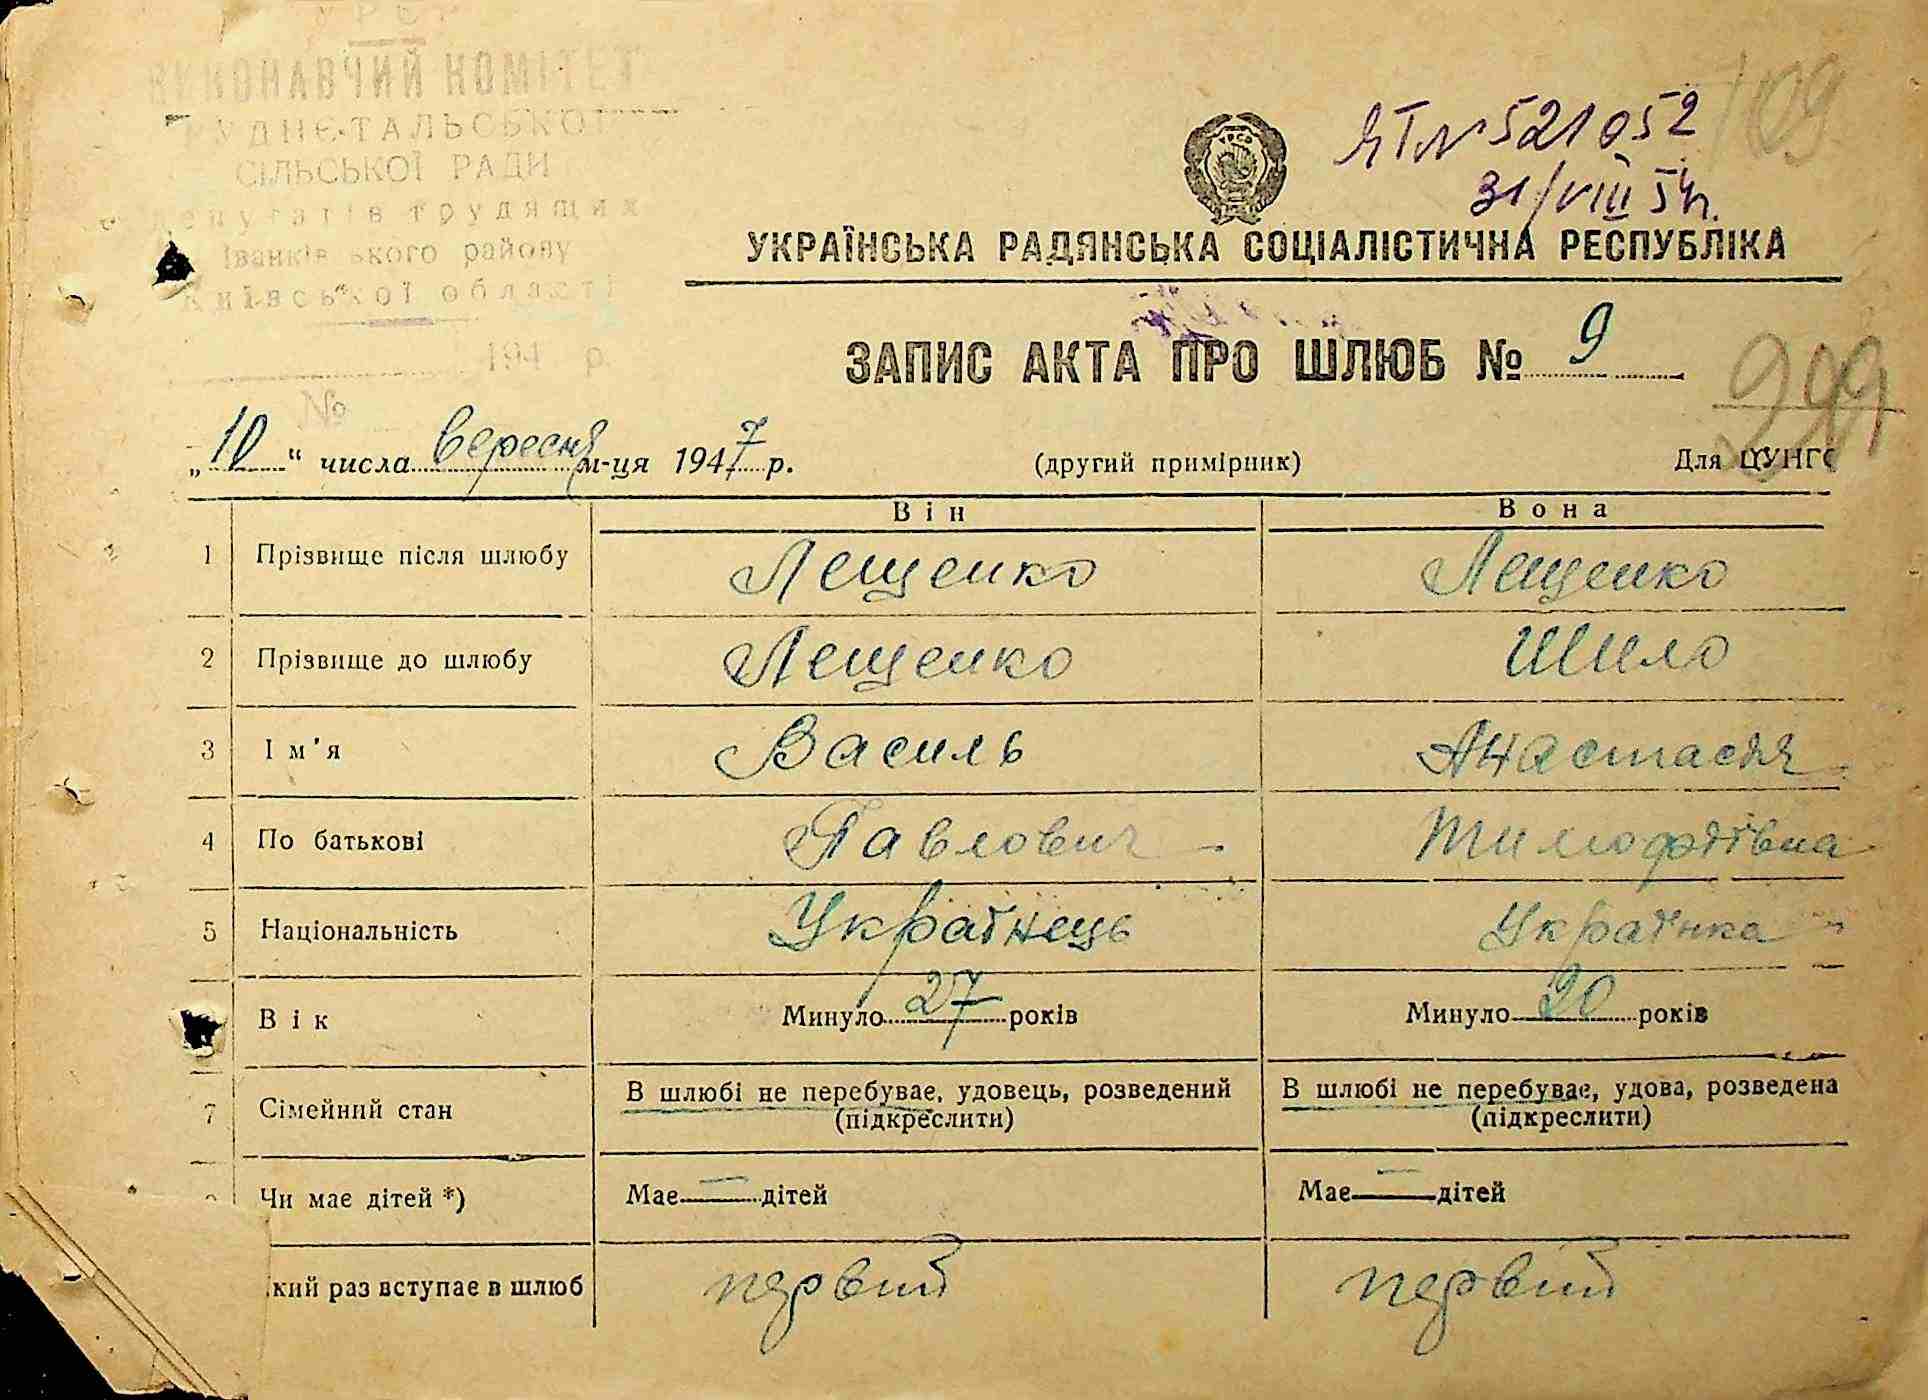 УРСР
ВИКОНАВЧИЙ КОМІТЕТ
РУДНЄ-ТАЛЬСЬКОЇ
СІЛЬСЬКОЇ РАДИ
депутатів трудящих
Іванківського району
Київської області
194 р.
№
ЯТ № 521052
31/VIII 54 р.
109
УКРАЇНСЬКА РАДЯНСЬКА СОЦІАЛІСТИЧНА РЕСПУБЛІКА
ЗАПИС АКТА ПРО ШЛЮБ № 9
299
„10“ числа вересня м-ця 1947 р. (другий примірник) Для ЦУНГС
Він Вона
1 Прізвище після шлюбу Лещенко Лещенко
2 Прізвище до шлюбу Лещенко Шило
3 Ім'я Василь Анастасія
4 По батькові Павлович Тимофіївна
5 Національність Українець Українка
Вік Минуло 27 років Минуло 20 років
7 Сімейний стан В шлюбі не перебуває, удовець, розведений (підкреслити) В шлюбі не перебуває, удова, розведена (підкреслити)
Чи має дітей *) Має — дітей Має — дітей
кий раз вступає в шлюб первий первий